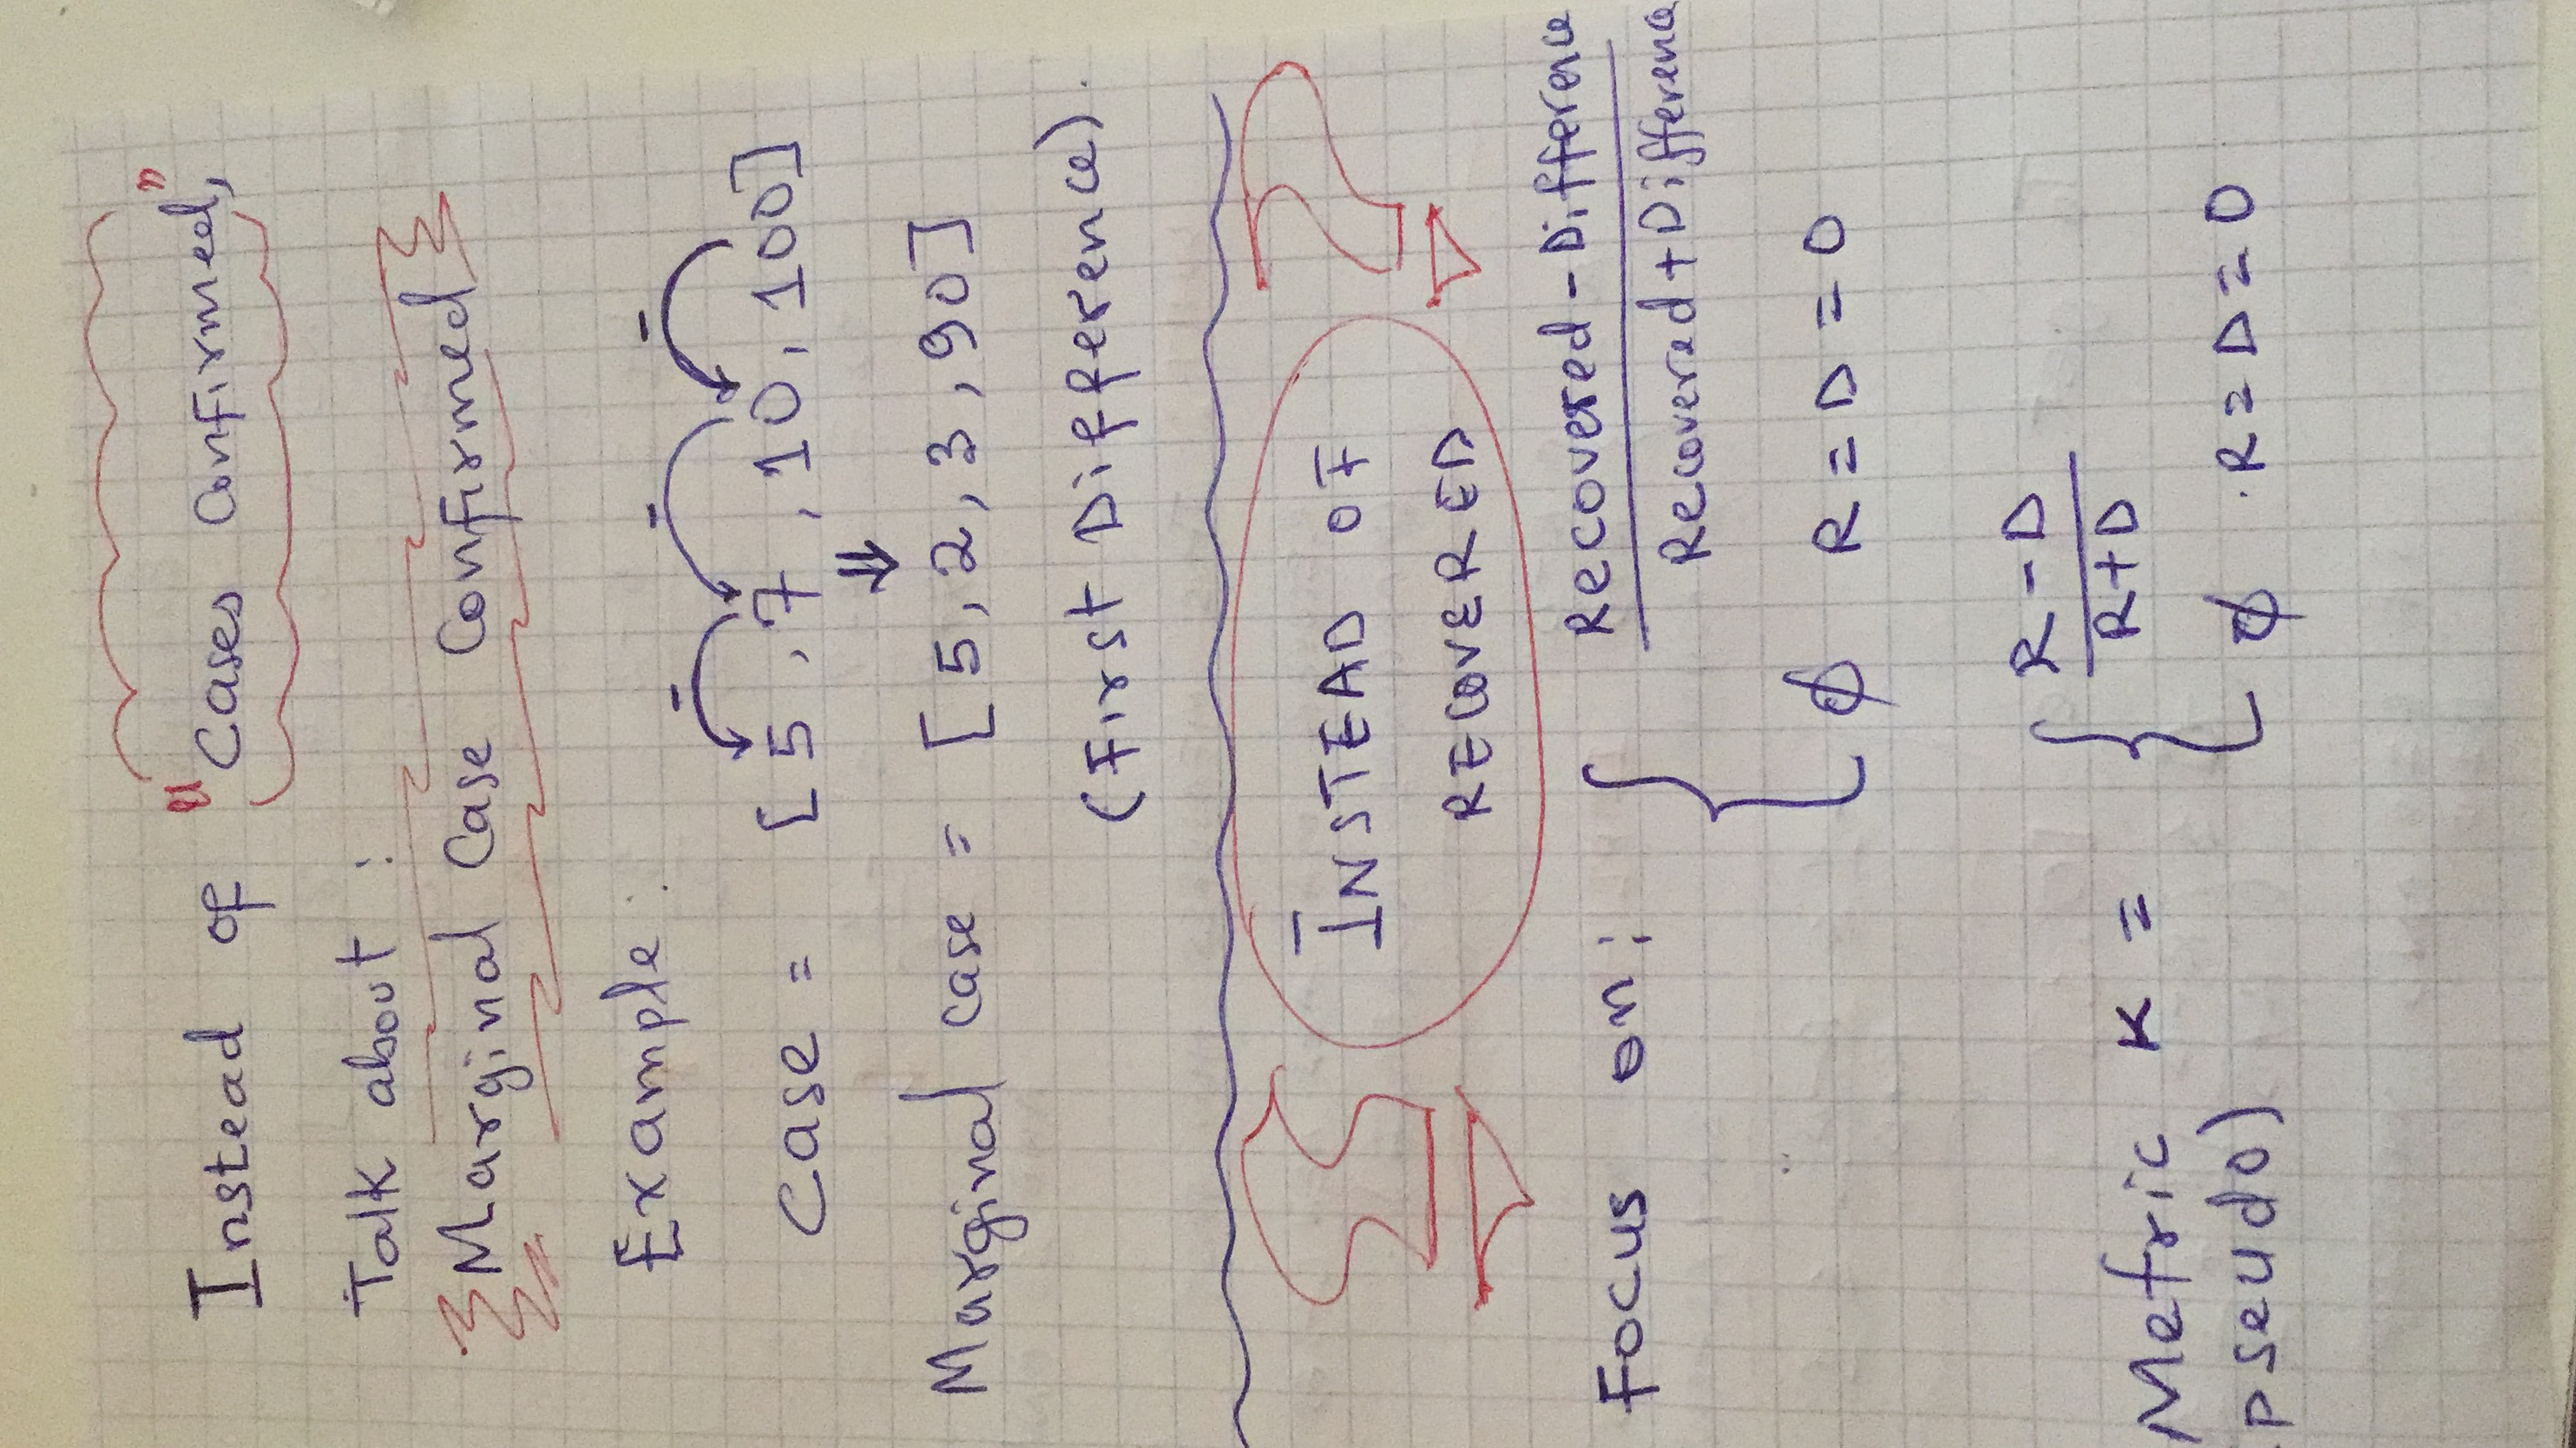 Instead of "Cases Confirmed,"
Talk about :
Marginal Case Confirmed
Example :
- - -
Case = [5, 7, 10, 100]
⇓
Marginal case = [5, 2, 3, 90]
(First Difference).
INSTEAD OF
RECOVERED
Focus on: { Recovered - Difference
Recovered + Difference
ϕ R = D = 0
Metric K = { R - D
R + D
pseudo) ϕ R = D = 0